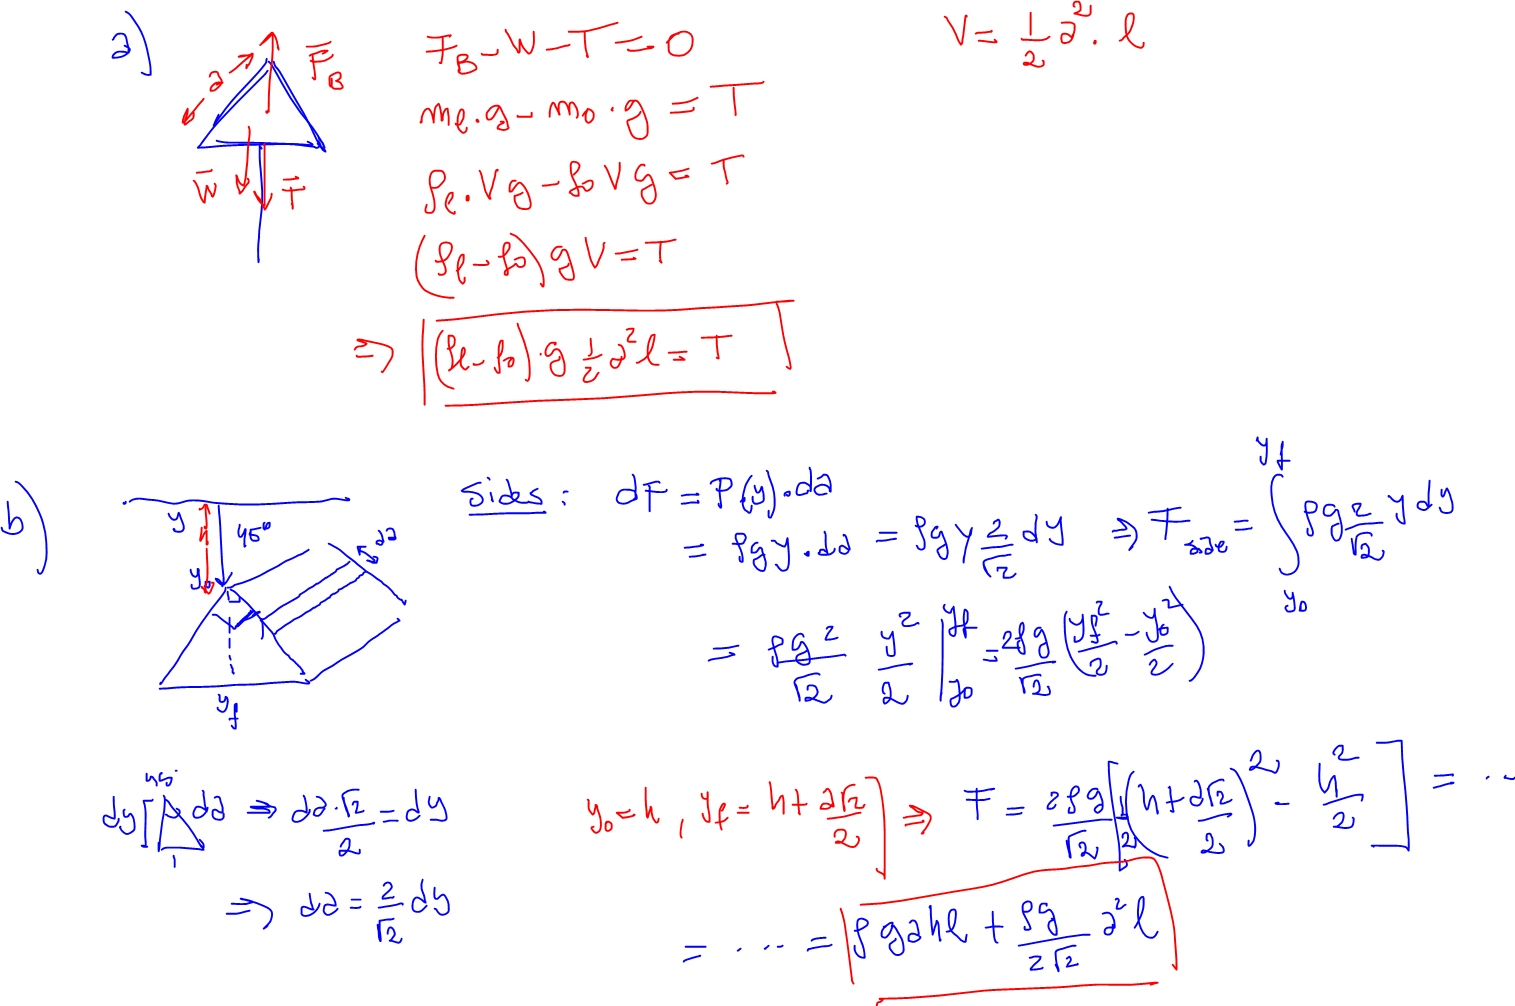 a)
a
F̄_B
W̄
T̄
F_B - W - T = 0
V = 1/2 a² · l
m_l · g - m_o · g = T
ρ_l · V g - ρ_o V g = T
(ρ_l - ρ_o) g V = T
⇒ (ρ_l - ρ_o) · g 1/2 a² l = T
b)
y
h
45°
y_0
da
y_f
Sides: dF = P(y) · da
= ρ g y · da = ρ g y 2/√2 dy ⇒ F_side = ∫_{y_0}^{y_f} ρ g 2/√2 y dy
= ρ g 2/√2 y²/2 |_{y_0}^{y_f} = 2 ρ g/√2 (y_f²/2 - y_0²/2)
45°
dy da ⇒ da · √2/2 = dy
1
⇒ da = 2/√2 dy
y_0 = h , y_f = h + a√2/2 ] ⇒ F = 2 ρ g/√2 [1/2 (h + a√2/2)² - h²/2] = ...
= ... = ρ g a h l + ρ g/2√2 a² l